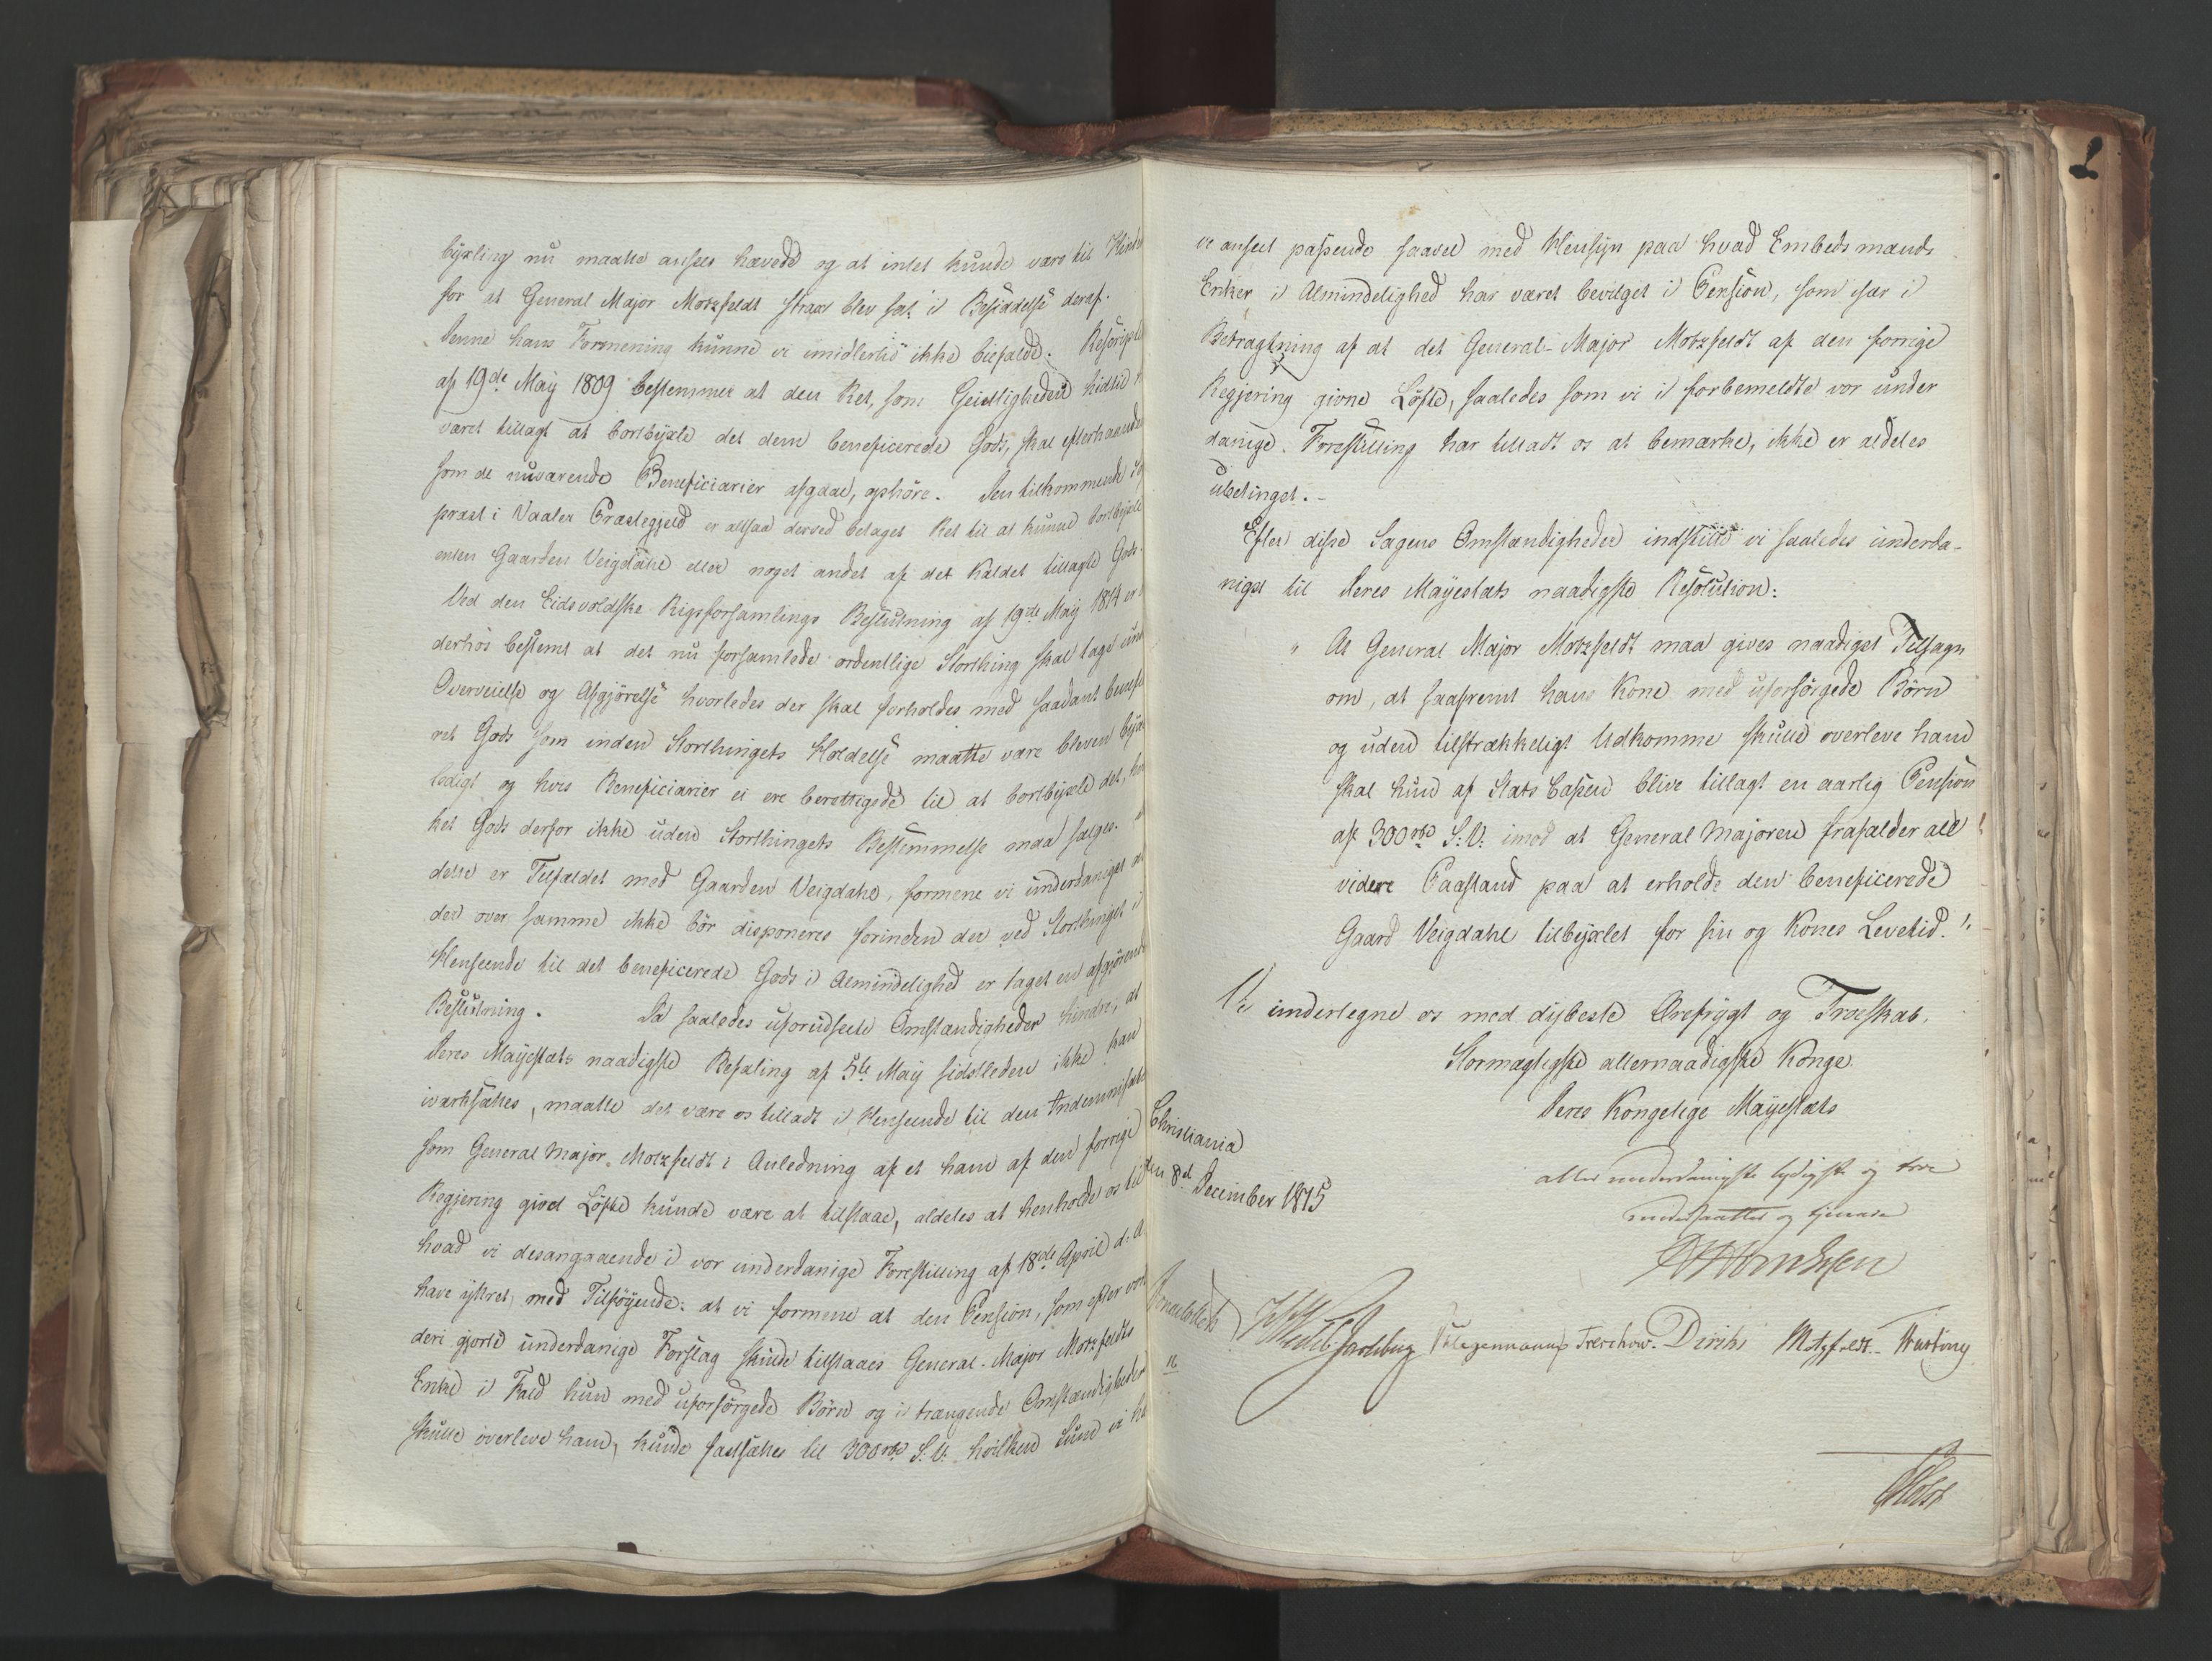 byxling nu maatte ansees hævedd og at intet kunde være til Hinder
for at General Major Motzfeldt strax blev sat i Besiddelse deraf.
Denne hans Formening kunne vi imidlertid ikke biefalde. Rescriptet
af 19de May 1809 bestemmer at den Ret, som Geistligheden hidtil
været tillagt at bortbyxle det dem beneficerede Gods, skal efterhaanden
som de nuværende Beneficiarier afgaae, ophöre. Den tilkommende
præst i Vaaler Præstegjeld er altsaa derved betaget Ret til at kunne bortbyxle
enten Gaarden Veigdahl eller noget andet af det Kaldet tillagte Gods.
Ved den Eidsvoldske Rigsforsamlings Beslutning af 19de May 1814 er
derhos bestemt at det nu forsamlede ordentlige Storthing skal tage under
Overveielse og Afgjörelse hvorledes der skal forholdes med saadant benefice-
ret Gods som inden Storthingets Holdelse maatte være bleven byxel
ledigt og hvis Beneficiarier ei ere berettigede til at bortbyxle det, hvil
ket Gods derfor ikke uden Storthingets Bestemmelse maa sælges.
dette er Tilfældet med Gaarden Veigdahl, formene vi underdanigst at
der over samme ikke bör disponeres forinden der ved Storthinget i
Henseende til det beneficerede Gods i Almindelighed er taget en afgjörende
Beslutning. Da saaledes uforudseete Omstændigheder hindre, at
Deres Mayestæts naadigste Befaling af 5te May sidstleden ikke kan
iværksættes, maatte det være os tilladt i Henseende til den Indemnisation
som General Major Motzfeldt i Anledning af et ham af den forrige
Regjering givet Löfte kunde være at tilstaae, aldeles at henholde os til
hvad vi desangaaende i vor underdanige Forestilling af 18de April d: A
have yttret, med Tilföyende: at vi formene at den Pension, som efter vort
deri gjorte underdanige Forslag skulde tilstaaes General-Major Motzfeldts
Enke i Fald hun med uforsörgede Börn og i trængende Omstændigheder
skulle overleve ham, kunde fastsættes til 300 rbd S.V. hvilken Sum vi ha
ve anseet passende saavel med Hensyn paa hvad Embedsmænds
Enker i Almindelighed har været bevilget i Pension, som især i
Betragtning af at det General-Major Motzfeldt af den forrige
Regjering givne Löfte, saaledes som vi i forbemeldte vor under
danige Forestilling har tilladt os at bemærke, ikke er aldeles
ubetinget.-
Efter disse Sagens Omstændigheder indstille vi saaledes underda-
nigst til Deres Mayestæts naadigste Resolution:
" At General Major Motzfeldt maa gives naadigst Tilsagn
om, at saafremt hans Kone med uforsörgede Börn
og uden tilstrækkeligt Udkomme skulle overleve ham
skal hun af Stats Cassen blive tillagt en aarlig Pension
af 300 rbd S:V: imod at General Majoren frafalder all
videre Paastand paa at erholde den beneficerede
Gaard Veigdahl tilbyxlet for sin og Kones Levetid."
Vi undertegne os med dybeste Ærefrygt og Troeskab,
Stormægtigste allernaadigste Konge.
Deres Kongelige Mayestæts
Christiania
den 8d December 1815
allerunderdanigste lydigste og troe
undersaatter og tjenere
Sommerhielm Wedel Jarlsberg Treschow. Diriks Motzfeldt.
Holst